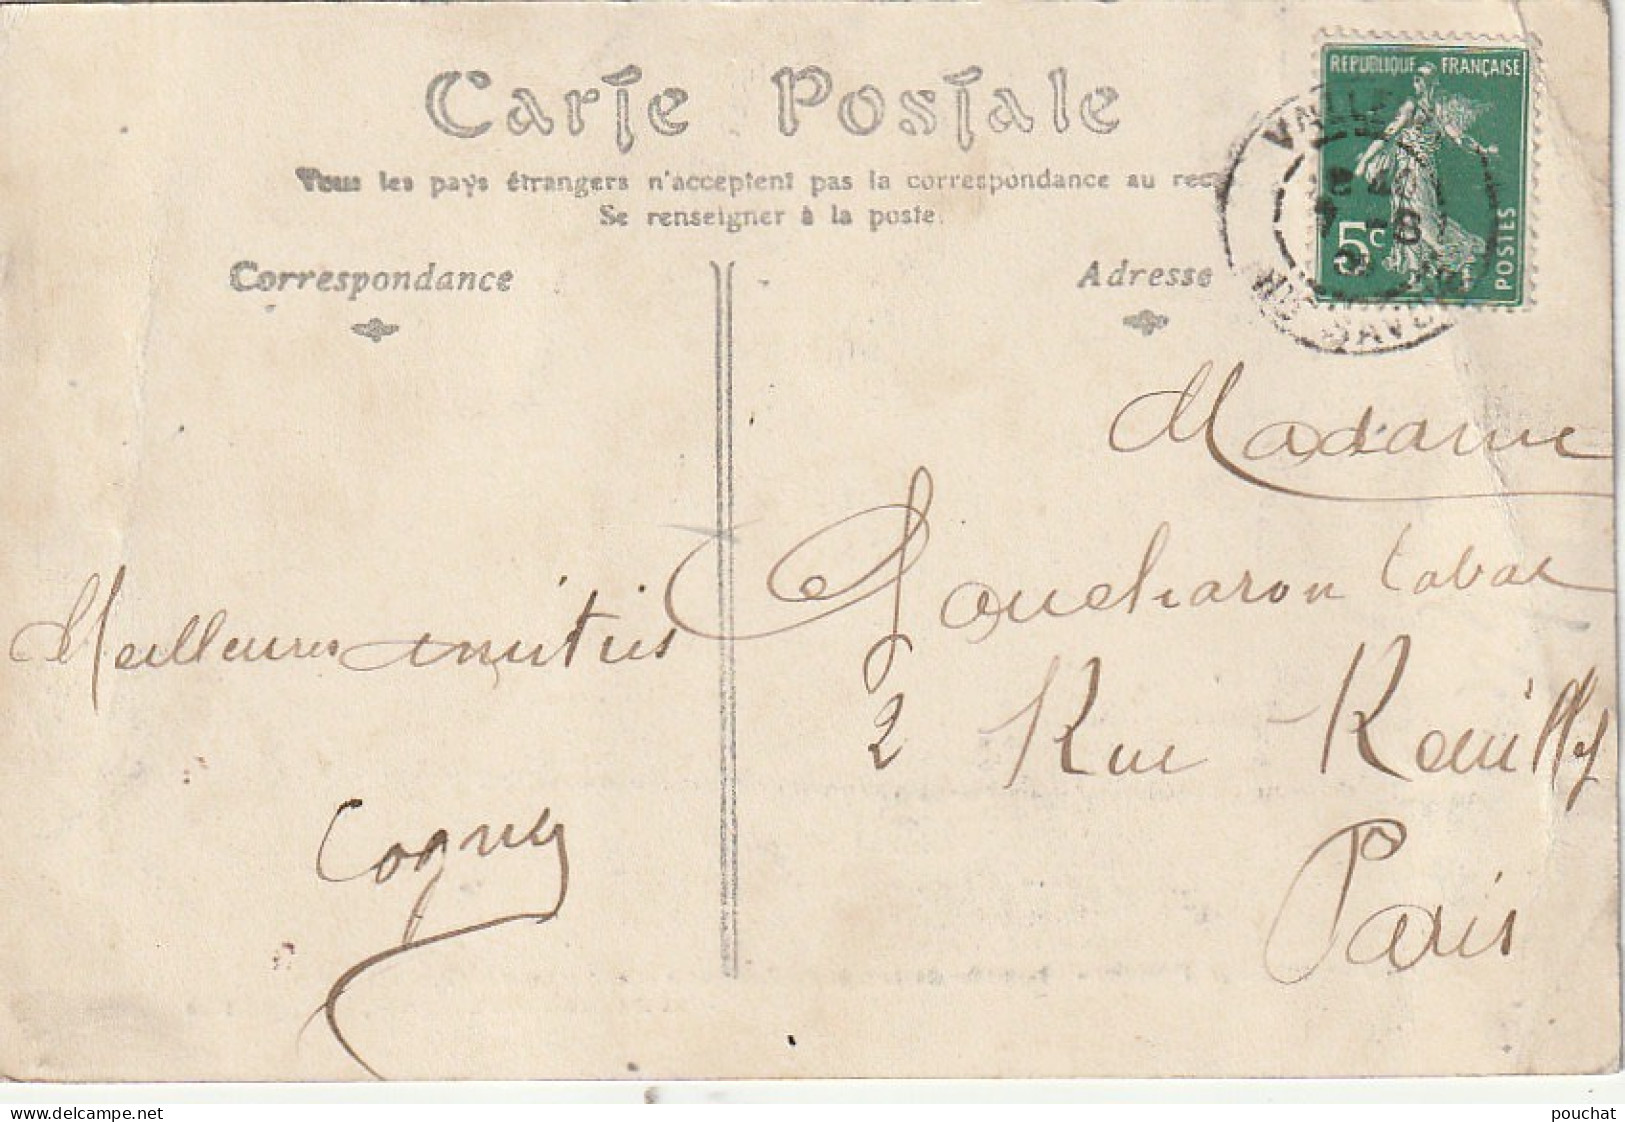 Carte Postale
Tous les pays étrangers n'acceptent pas la correspondance au rec
Se renseigner à la poste.
Correspondance
Adresse
REPUBLIQUE FRANÇAISE
5c
POSTES
Madame
Foucharon tabac
2 Rue Reuilly
Paris
Meilleures amitiés
Cogny
delcampe.net
pouchat